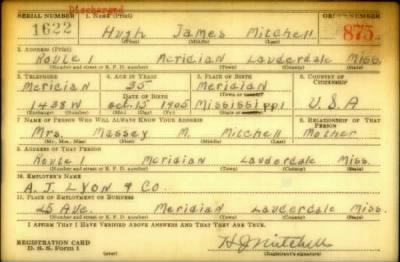 Discharged
SERIAL NUMBER 1. NAME (Print) ORDER NUMBER
1622 Hugh James Mitchell 875
(First) (Middle) (Last)
2. ADDRESS (Print)
Route 1 Meridian Lauderdale Miss.
(Number and street or R. F. D. number) (Town) (County) (State)
3. TELEPHONE 4. AGE IN YEARS 5. PLACE OF BIRTH 6. COUNTRY OF CITIZENSHIP
Meridian 35 Meridian
DATE OF BIRTH (Town or county)
1438W Oct. 15 1905 Mississippi U.S.A
(Exchange) (Number) (Mo.) (Day) (Yr.) (State or country)
7. NAME OF PERSON WHO WILL ALWAYS KNOW YOUR ADDRESS 8. RELATIONSHIP OF THAT PERSON
Mrs. Massey M. Mitchell Mother
(Mr., Mrs., Miss) (First) (Middle) (Last)
9. ADDRESS OF THAT PERSON
Route 1 Meridian Lauderdale Miss.
(Number and street or R. F. D. number) (Town) (County) (State)
10. EMPLOYER'S NAME
A. J. Lyon & Co.
11. PLACE OF EMPLOYMENT OR BUSINESS
25 Ave. Meridian Lauderdale Miss.
(Number and street or R. F. D. number) (Town) (County) (State)
I AFFIRM THAT I HAVE VERIFIED ABOVE ANSWERS AND THAT THEY ARE TRUE.
REGISTRATION CARD
D. S. S. Form 1 H J Mitchell
(Registrant's signature)